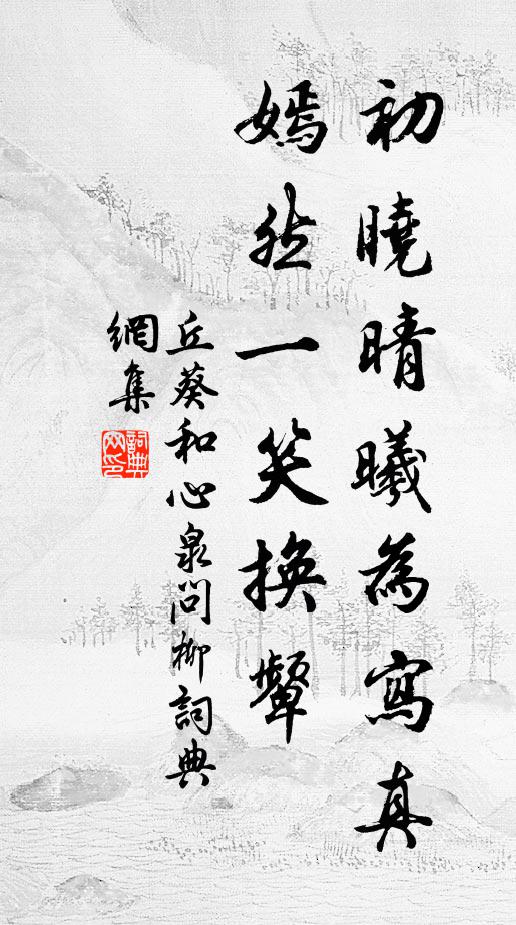 初曉晴曦為寫真
嫣然一笑換顰
丘葵和心泉問柳詞典
網集
詞典
网印